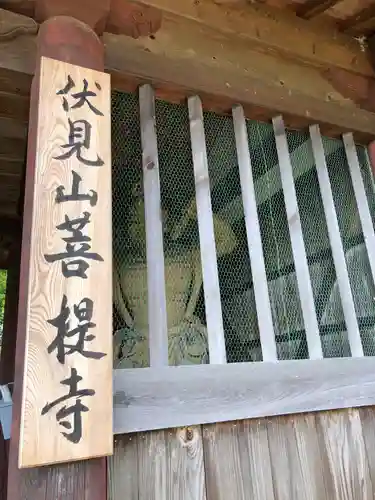 伏見山菩提寺